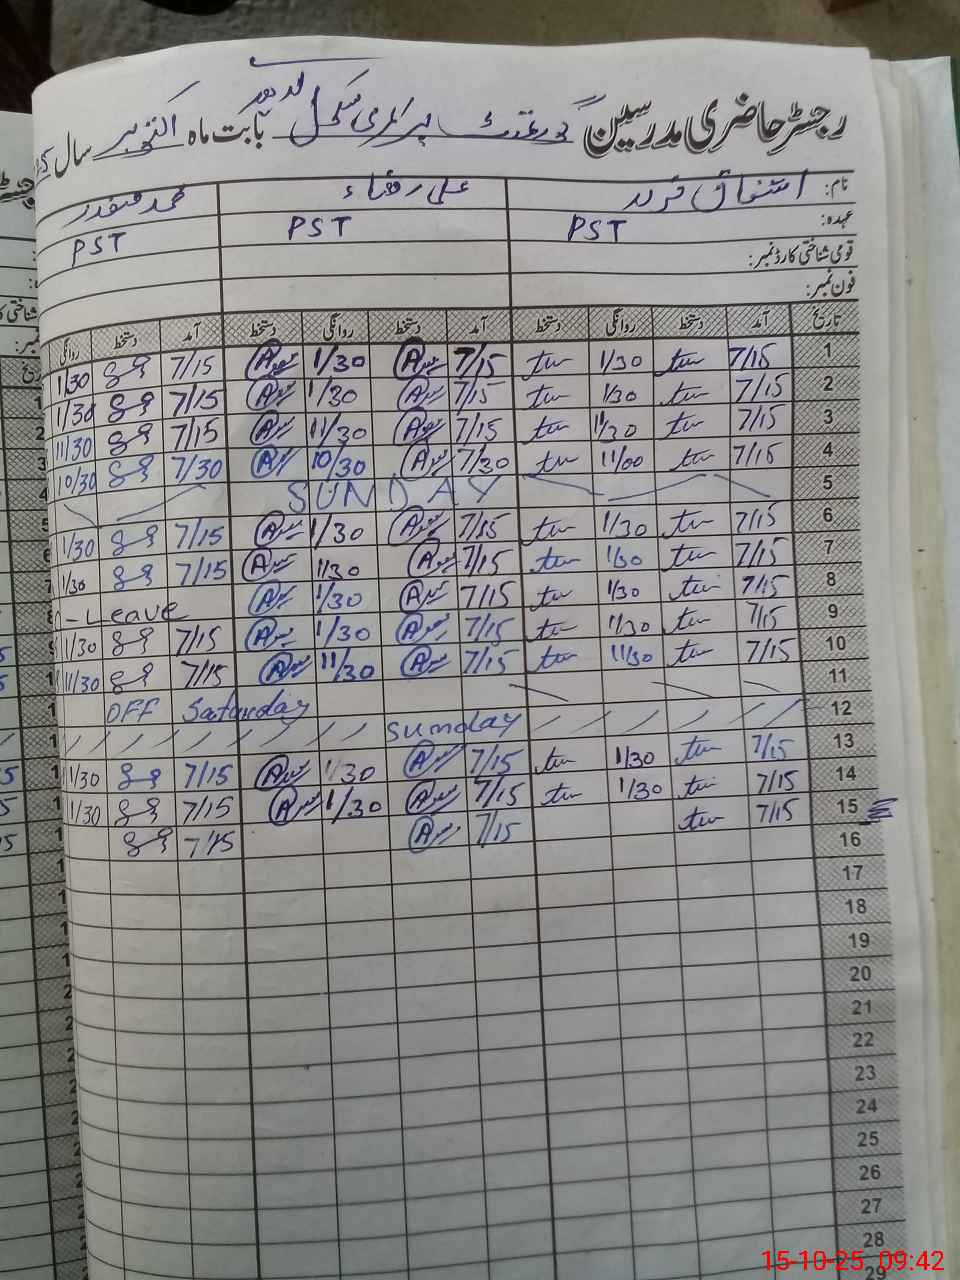 رجسٹر حاضری مدرسین گورنمنٹ پرائمری سکول بابت ماہ اکتوبر سال
نام: اشفاق فرید علی رفقاء محمد صفدر
عہدہ: PST PST PST
قومی شناختی کارڈ نمبر:
فون نمبر:
تاریخ آمد دستخط روانگی دستخط آمد دستخط روانگی دستخط آمد دستخط روانگی
1 7/15 1/30 7/15 1/30 7/15 1/30
2 7/15 1/30 7/15 1/30 7/15 1/30
3 7/15 11/30 7/15 11/30 7/15 11/30
4 7/15 11/00 7/30 10/30 7/30 10/30
5 SUNDAY
6 7/15 1/30 7/15 1/30 7/15 1/30
7 7/15 1/30 7/15 1/30 7/15 1/30
8 7/15 1/30 7/15 1/30 Leave
9 7/15 1/30 7/15 1/30 7/15 1/30
10 7/15 11/30 7/15 11/30 7/15 11/30
11 OFF Saturday
12 Sunday
13 7/15 1/30 7/15 1/30 7/15 1/30
14 7/15 1/30 7/15 1/30 7/15 1/30
15 7/15 7/15 7/15
16
17
18
19
20
21
22
23
24
25
26
27
28
29
15-10-25 09:42